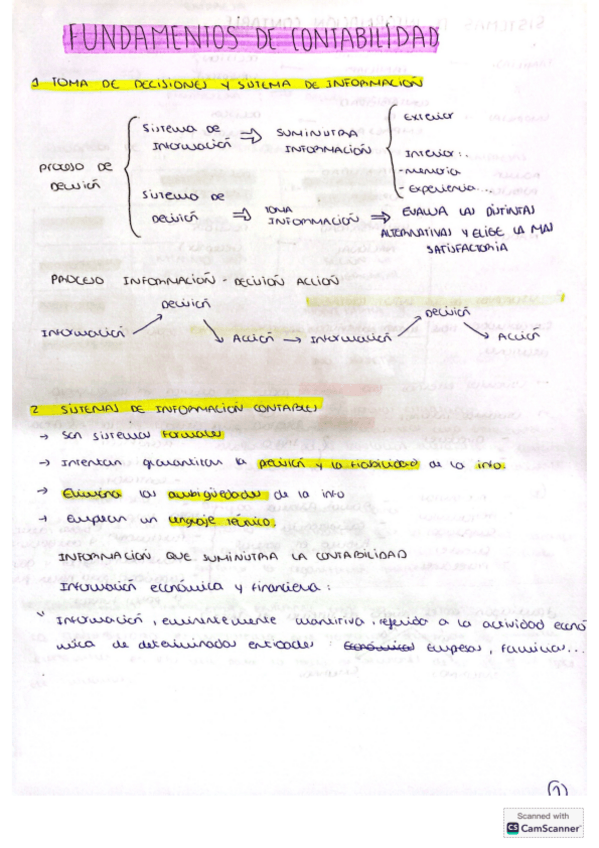 FUNDAMENTOS DE CONTABILIDAD
1 TOMA DE DECISIONES Y SISTEMA DE INFORMACIÓN
Proceso de Decisión
Sistema de Información ⇒ SUMINISTRA INFORMACIÓN
Exterior
Interior:..
- Memoria
- Experiencia...
Sistema de Decisión ⇒ TOMA INFORMACIÓN ⇒ EVALUA LAS DISTINTAS
ALTERNATIVAS Y ELIGE LA MAS
SATISFACTORIA
PROCESO INFORMACIÓN - DECISIÓN ACCIÓN
Información → Decisión → Acción → Información → Decisión → Acción
2 SISTEMAS DE INFORMACIÓN CONTABLES
→ Son sistemas formales
→ Intentan garantizar la precisión y la fiabilidad de la info.
→ Elimina las ambigüedades de la info
→ Emplean un lenguaje técnico.
INFORMACIÓN QUE SUMINISTRA LA CONTABILIDAD
Información económica y financiera:
" Información, eminentemente cuantitiva, referido a la actividad econó
mica de determinadas entidades: Económicas Empresas, familias...
(1)
Scanned with
CS CamScanner